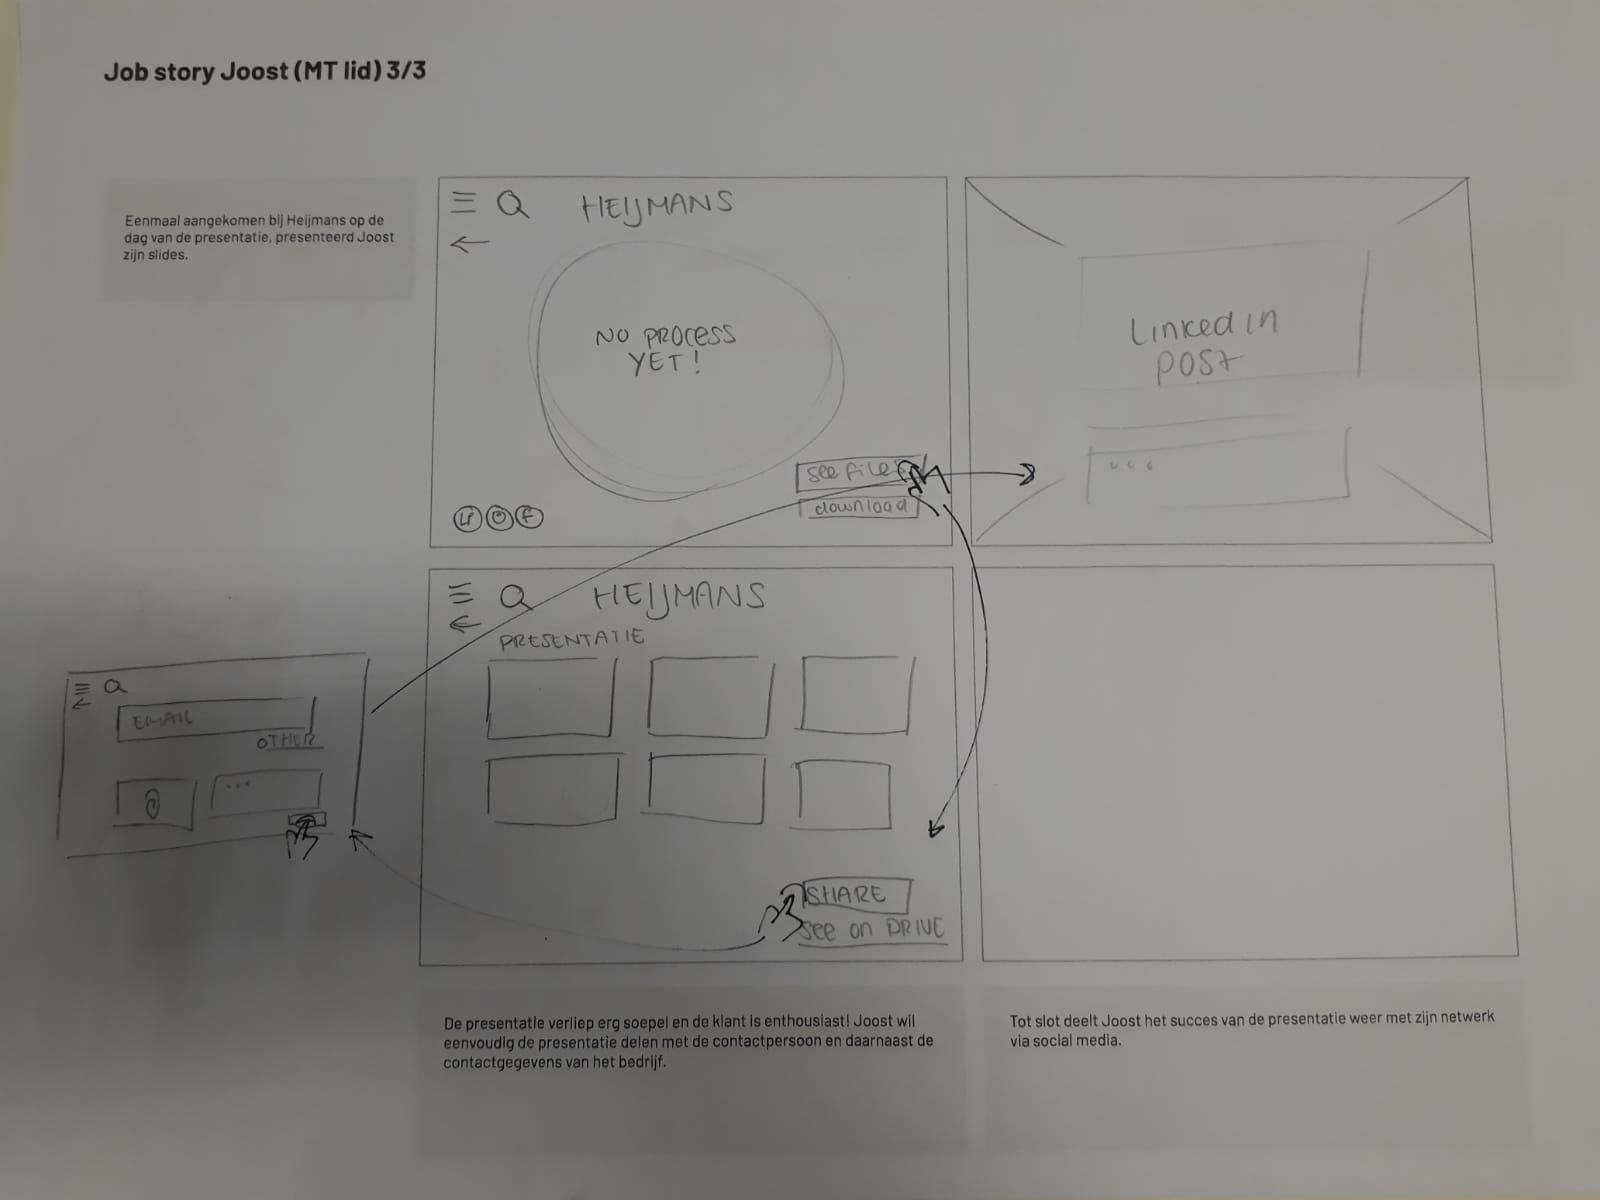 Job story Joost (MT lid) 3/3
Eenmaal aangekomen bij Heijmans op de
dag van de presentatie, presenteerd Joost
zijn slides.
HEIJMANS
NO PROCESS
YET!
see files
download
Linked in
POST
HEIJMANS
PRESENTATIE
SHARE
see on DRIVE
EMAIL
OTHER
De presentatie verliep erg soepel en de klant is enthousiast! Joost wil
eenvoudig de presentatie delen met de contactpersoon en daarnaast de
contactgegevens van het bedrijf.
Tot slot deelt Joost het succes van de presentatie weer met zijn netwerk
via social media.